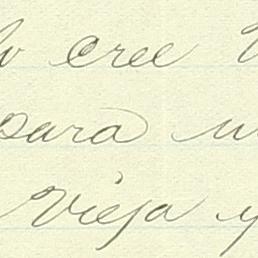 cree
para
Vieja y